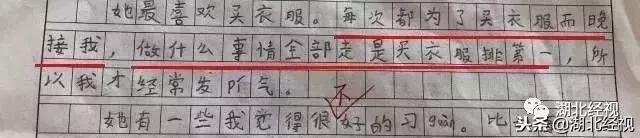 她最喜欢买衣服。每次都为了买衣服而晚
接我，做什么事情全部走是买衣服排第一，所
以我才经常发pí气。
不
她有一些我觉得很好的习guàn。比
湖北经视
头条@湖北经视